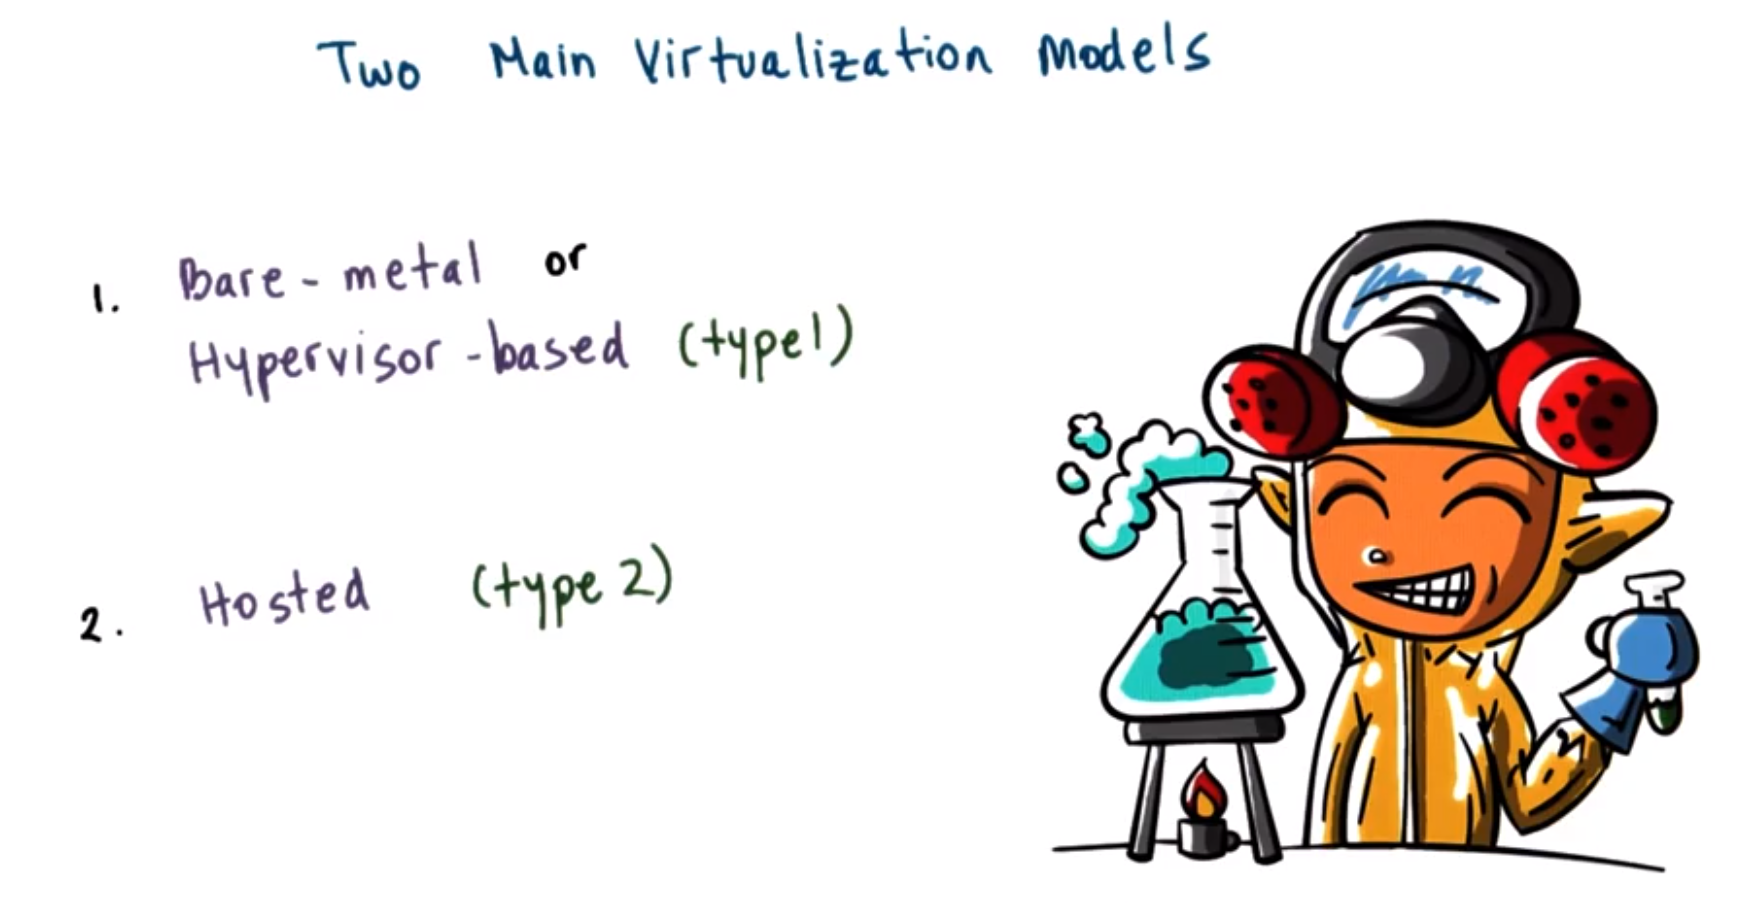 Two Main Virtualization Models
1. Bare-metal or
Hypervisor-based (type1)
2. Hosted (type 2)